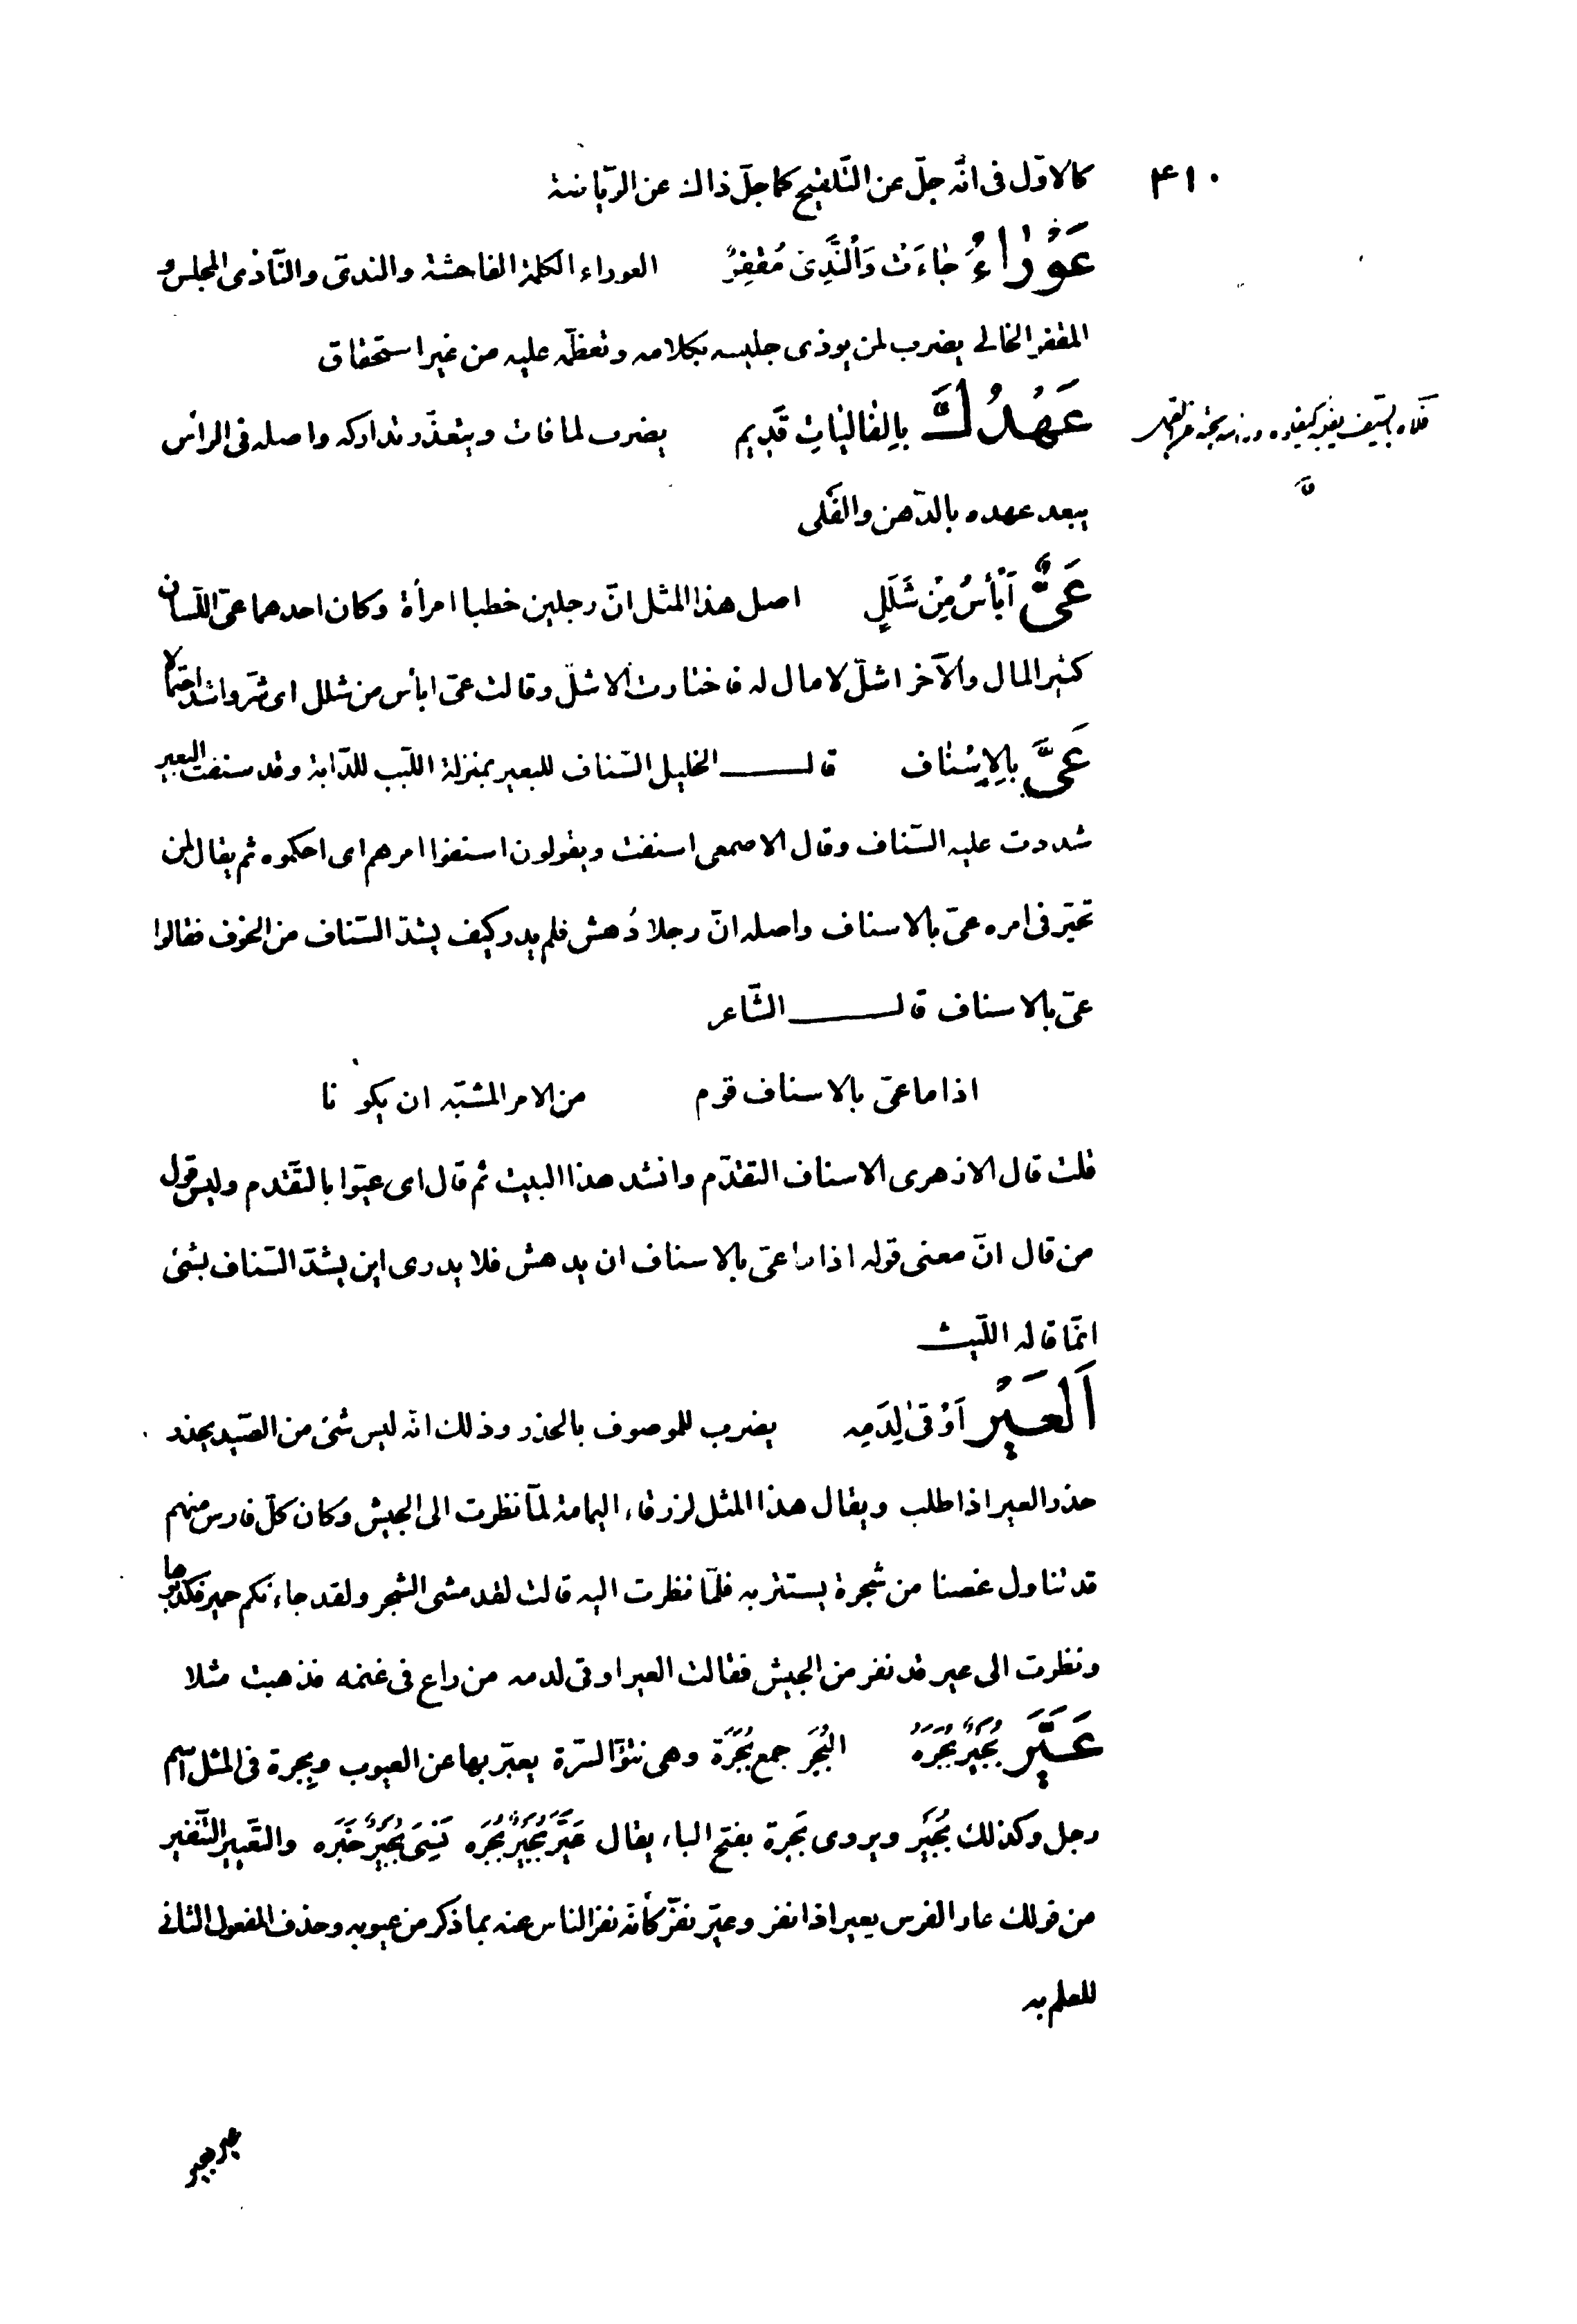 ٤١٠
كالاوّل فى انّه جلّ عن التّلقيح كما جلّ ذاك عن الرّياضة
عَوْرٰاءُ جٰاءَتْ وَالنَّدِىّ مُقْفِرٌ العوراء الكلمة الفاحشة والندىّ والنّادى المجلس و
المقفر الخالى يضرب لمن يوذى جليسه بكلامه وتعظّمه عليه من غير استحقاق
عَهْدُكَ بِالفٰالِيٰاتِ قَدِيم يضرب لما فات ويتعذّر تداركه واصله فى الرأس
فلاه بالسيف
يبعد عهده بالدّهن والفَلى
عَىٌّ اَبْأَسُ مِنْ شَلَلٍ اصل هذا المثل انّ رجلين خطبا امرأة وكان احدهما عىّ اللّسان
كثير المال والآخر اشلّ لا مال له فاختارت الاشلّ وقالت عىّ ابأس من شلل اى شرّ واشدّ احتمالا
عَىَّ بِالاِسْنٰاف قال الخليل السّناف للبعير بمنزلة اللّبب للدّابة وقد سنفت البعير
شددت عليه السّناف وقال الاصمعى اسنفت ويقولون اسنفوا امرهم اى احكموه ثم يقال لمن
تحيّر فى امره عىّ بالاسناف واصله انّ رجلا دُهش فلم يدر كيف يشدّ السّناف من الخوف فقالوا
عىّ بالاسناف قال الشّاعر
اذا ما عىّ بالاسناف قوم من الامر المشبّه ان يكونا
قلت قال الازهرى الاسناف التقدّم وانشد هذا البيت ثم قال اى عيّوا بالتّقدم وليس قول
من قال انّ معنى قوله اذا ما عىّ بالاسناف ان يدهش فلا يدرى اين يشدّ السّناف بشئ
انّما قاله اللّيث
اَلْعَيْر اَوْقىٰ لِدَمِه يضرب للموصوف بالحذر وذلك انّه ليس شئ من الصّيد يحذر
حذر العير اذا طلب ويقال هذا المثل لزرقاء اليمامة لمّا نظرت الى الجيش وكان كلّ فارس منهم
قد تناول غصنا من شجرة يستتر به فلمّا نظرت اليه قالت لقد مشى الشجر ولقد جاءتكم حمير فكذّبوها
ونظرت الى عير قد نفر من الجيش فقالت العير اوقى لدمه من راع فى غنمه فذهبت مثلا
عَيَّر بُجَيْرٌ بُجَرَه البُجَر جمع بُجْرَة وهى نتؤ السرّة يعبّر بها عن العيوب وبجرة فى المثل اسم
رجل وكذلك بُجَيْر ويروى بَجرة بفتح الباء يقال عَيَّرَ بُجَيْرٌ بُجَرَه نَسِىَ بُجَيْرٌ خَبَرَه والتّعيير التّنفير
من قولك عار الفرس يعير اذا نفر وعيّر نفّر كأنّه نفّر الناس عنه بما ذكر من عيوبه وحذف المفعول الثانى
للعلم به
عير بجير